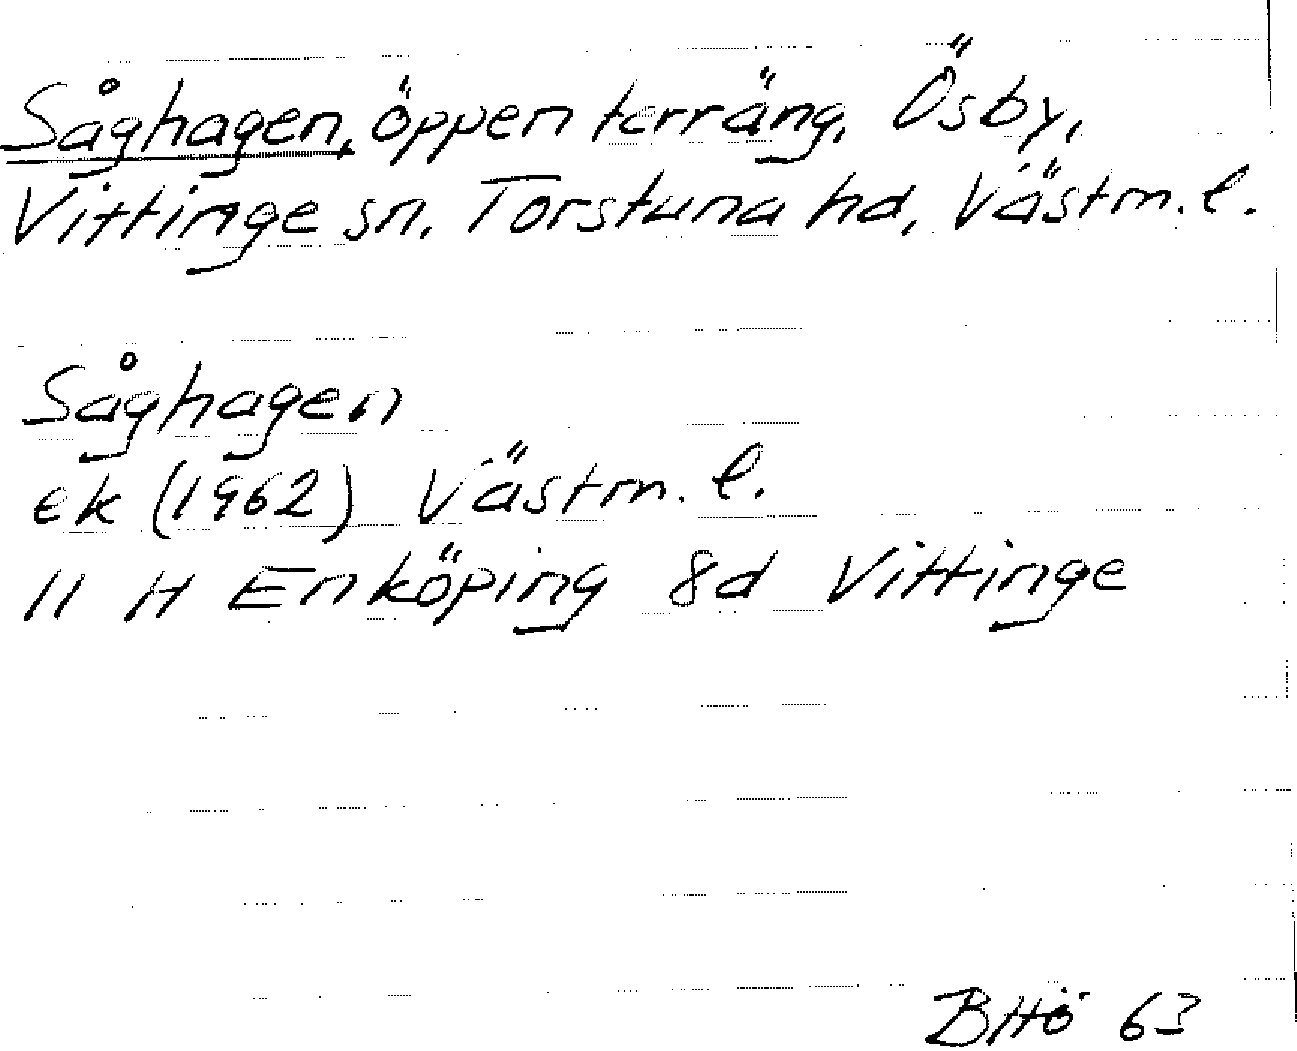 Såghagen, öppen terräng, Ösby,
Vittinge sn, Torstuna hd, Västm. l.
Såghagen
ek (1962) Västm. l.
11 H Enköping 8d Vittinge
BHö 63